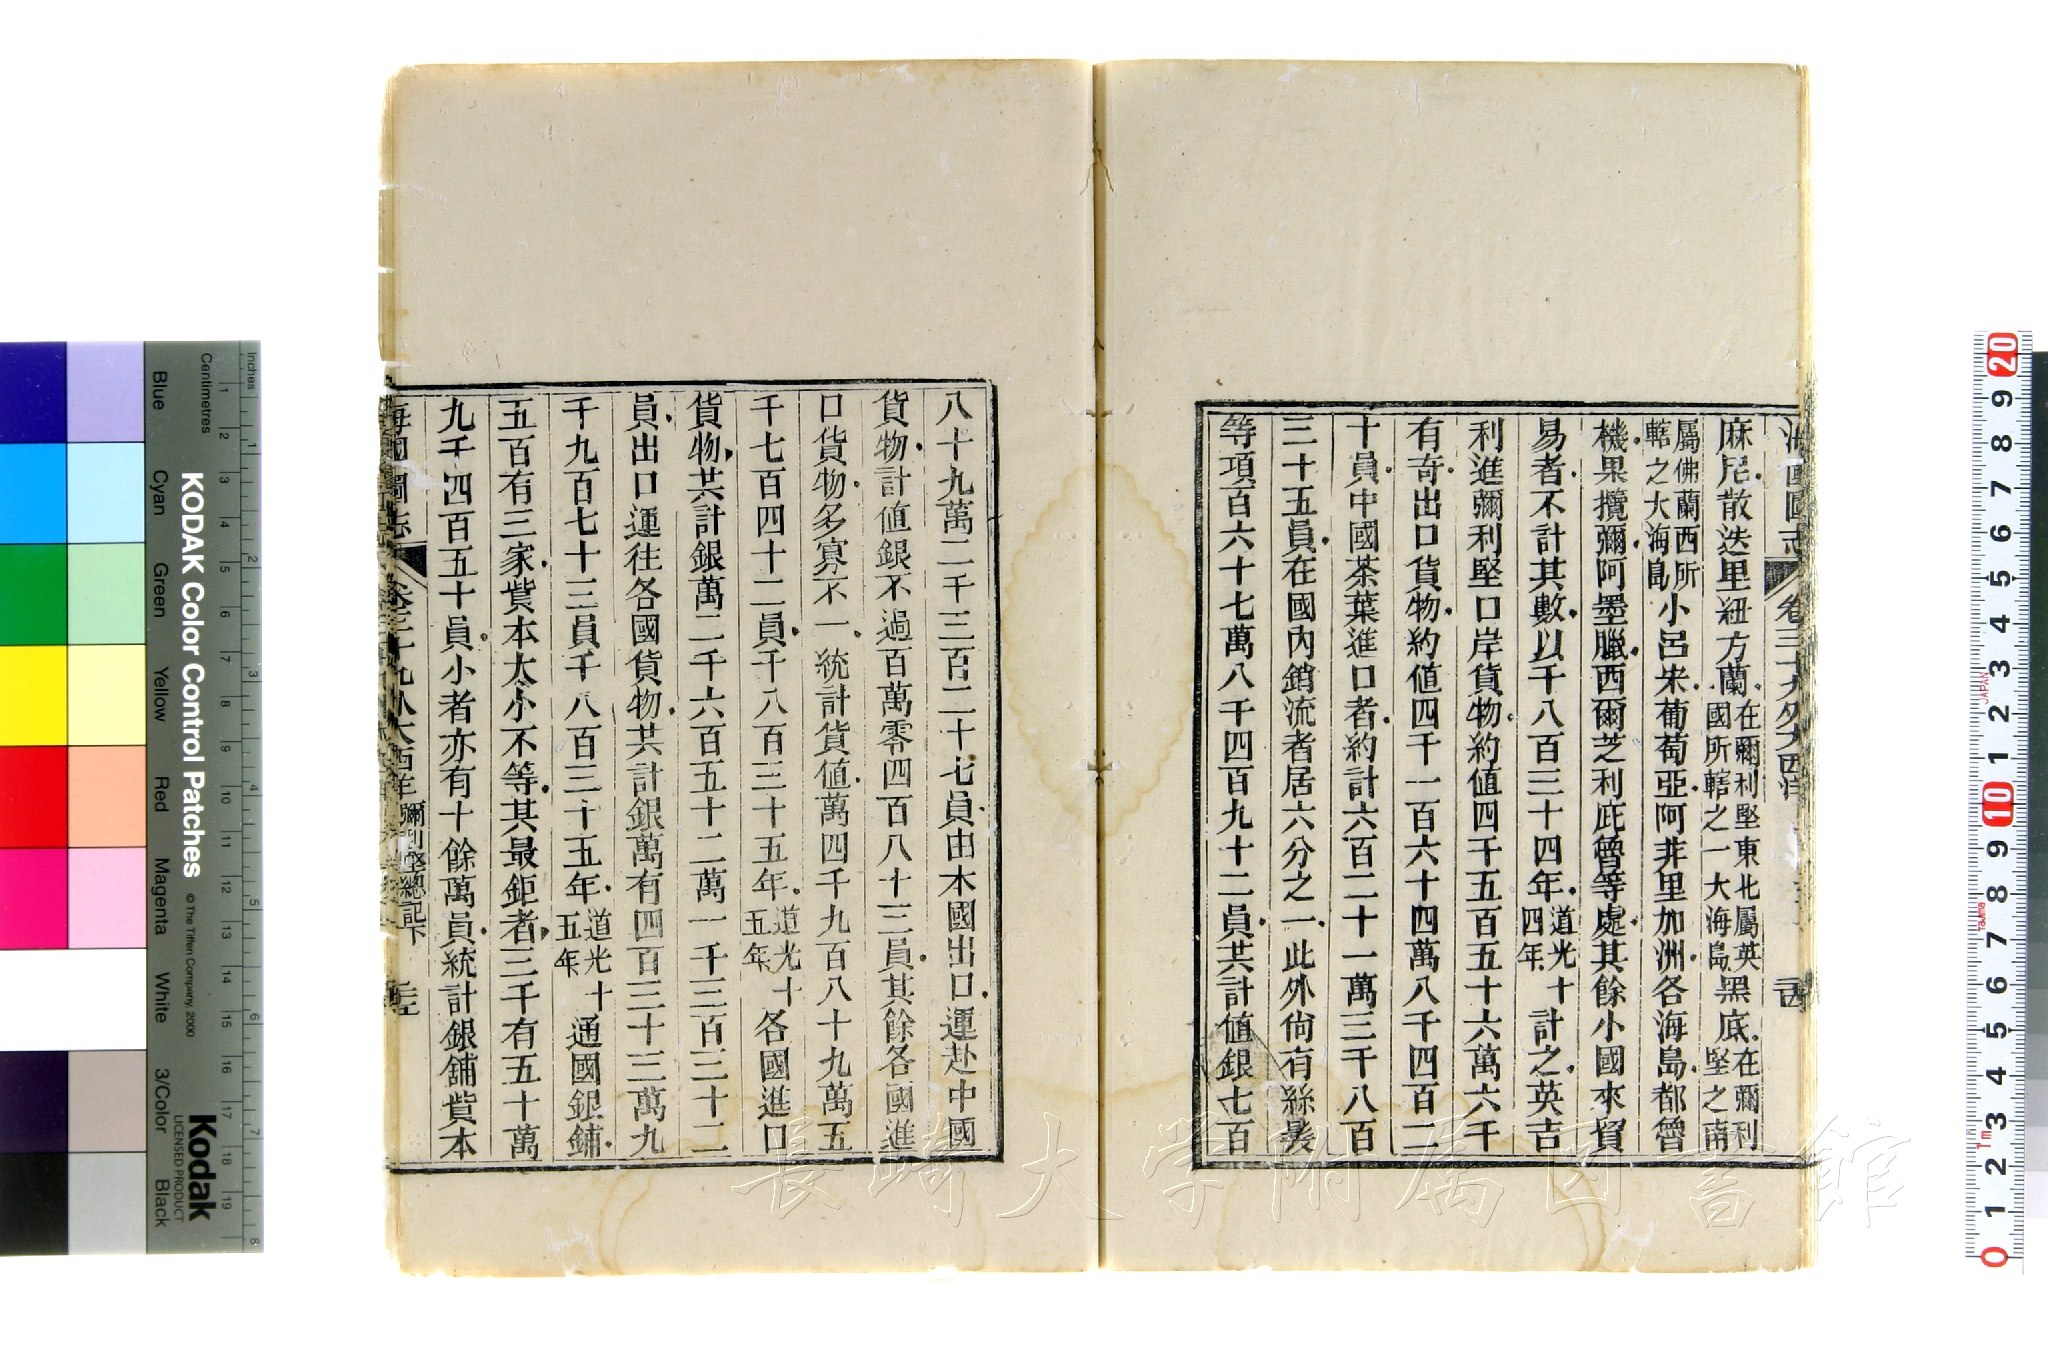 海國圖志 卷三十九外大西洋
麻尼散迭里紐方蘭在彌利堅東北屬英國所轄之一大海島黑底在彌利堅之南
屬佛蘭西所轄之大海島小呂宋葡萄亞阿非里加洲各海島都魯
機果攬彌阿墨臘西爾芝利庇魯等處其餘小國來貿
易者不計其數以千八百三十四年道光十四年計之英吉
利進彌利堅口岸貨物約值四千五百五十六萬六千
有奇出口貨物約值四千一百六十四萬八千四百二
十員中國茶葉進口者約計六百二十一萬三千八百
三十五員在國內銷流者居六分之一此外尙有絲髮
等項百六十七萬八千四百九十二員共計値銀七百
八十九萬二千三百二十七員由本國出口運赴中國
貨物計値銀不過百萬零四百八十三員其餘各國進
口貨物多寡不一統計貨値萬四千九百八十九萬五
千七百四十二員千八百三十五年道光十五年各國進口
貨物共計銀萬二千六百五十二萬一千三百三十二
員出口運往各國貨物共計銀萬有四百三十三萬九
千九百七十三員千八百三十五年道光十五年通國銀鋪
五百有三家貲本大小不等其最鉅者三千有五十萬
九千四百五十員小者亦有十餘萬員統計銀鋪貲本
海國圖志 卷三十九外大西洋 彌利堅總記下
長崎大学附属図書館
KODAK Color Control Patches
© The Tiffen Company, 2000
Kodak
LICENSED PRODUCT
Inches
Centimetres
Blue
Cyan
Green
Yellow
Red
Magenta
White
3/Color
Black